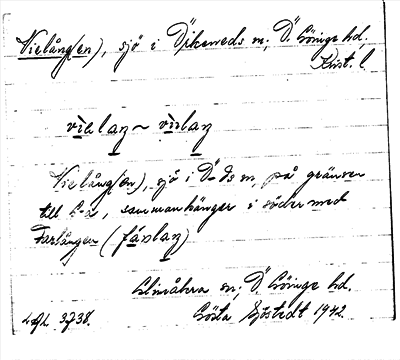 Vielång(en), sjö i Örkeneds sn, Ö. Göinge hd.
Krist. l.
vielaŋ ~ vislaŋ
Vielång(en), sjö i Ö-ds sn, på gränsen
till G-a, sammanhänger i söder med
Farlången (fáslaŋ)
Glimåkra sn, Ö. Göinge hd.
Gösta Sjöstedt 1942.
LAL 3738.